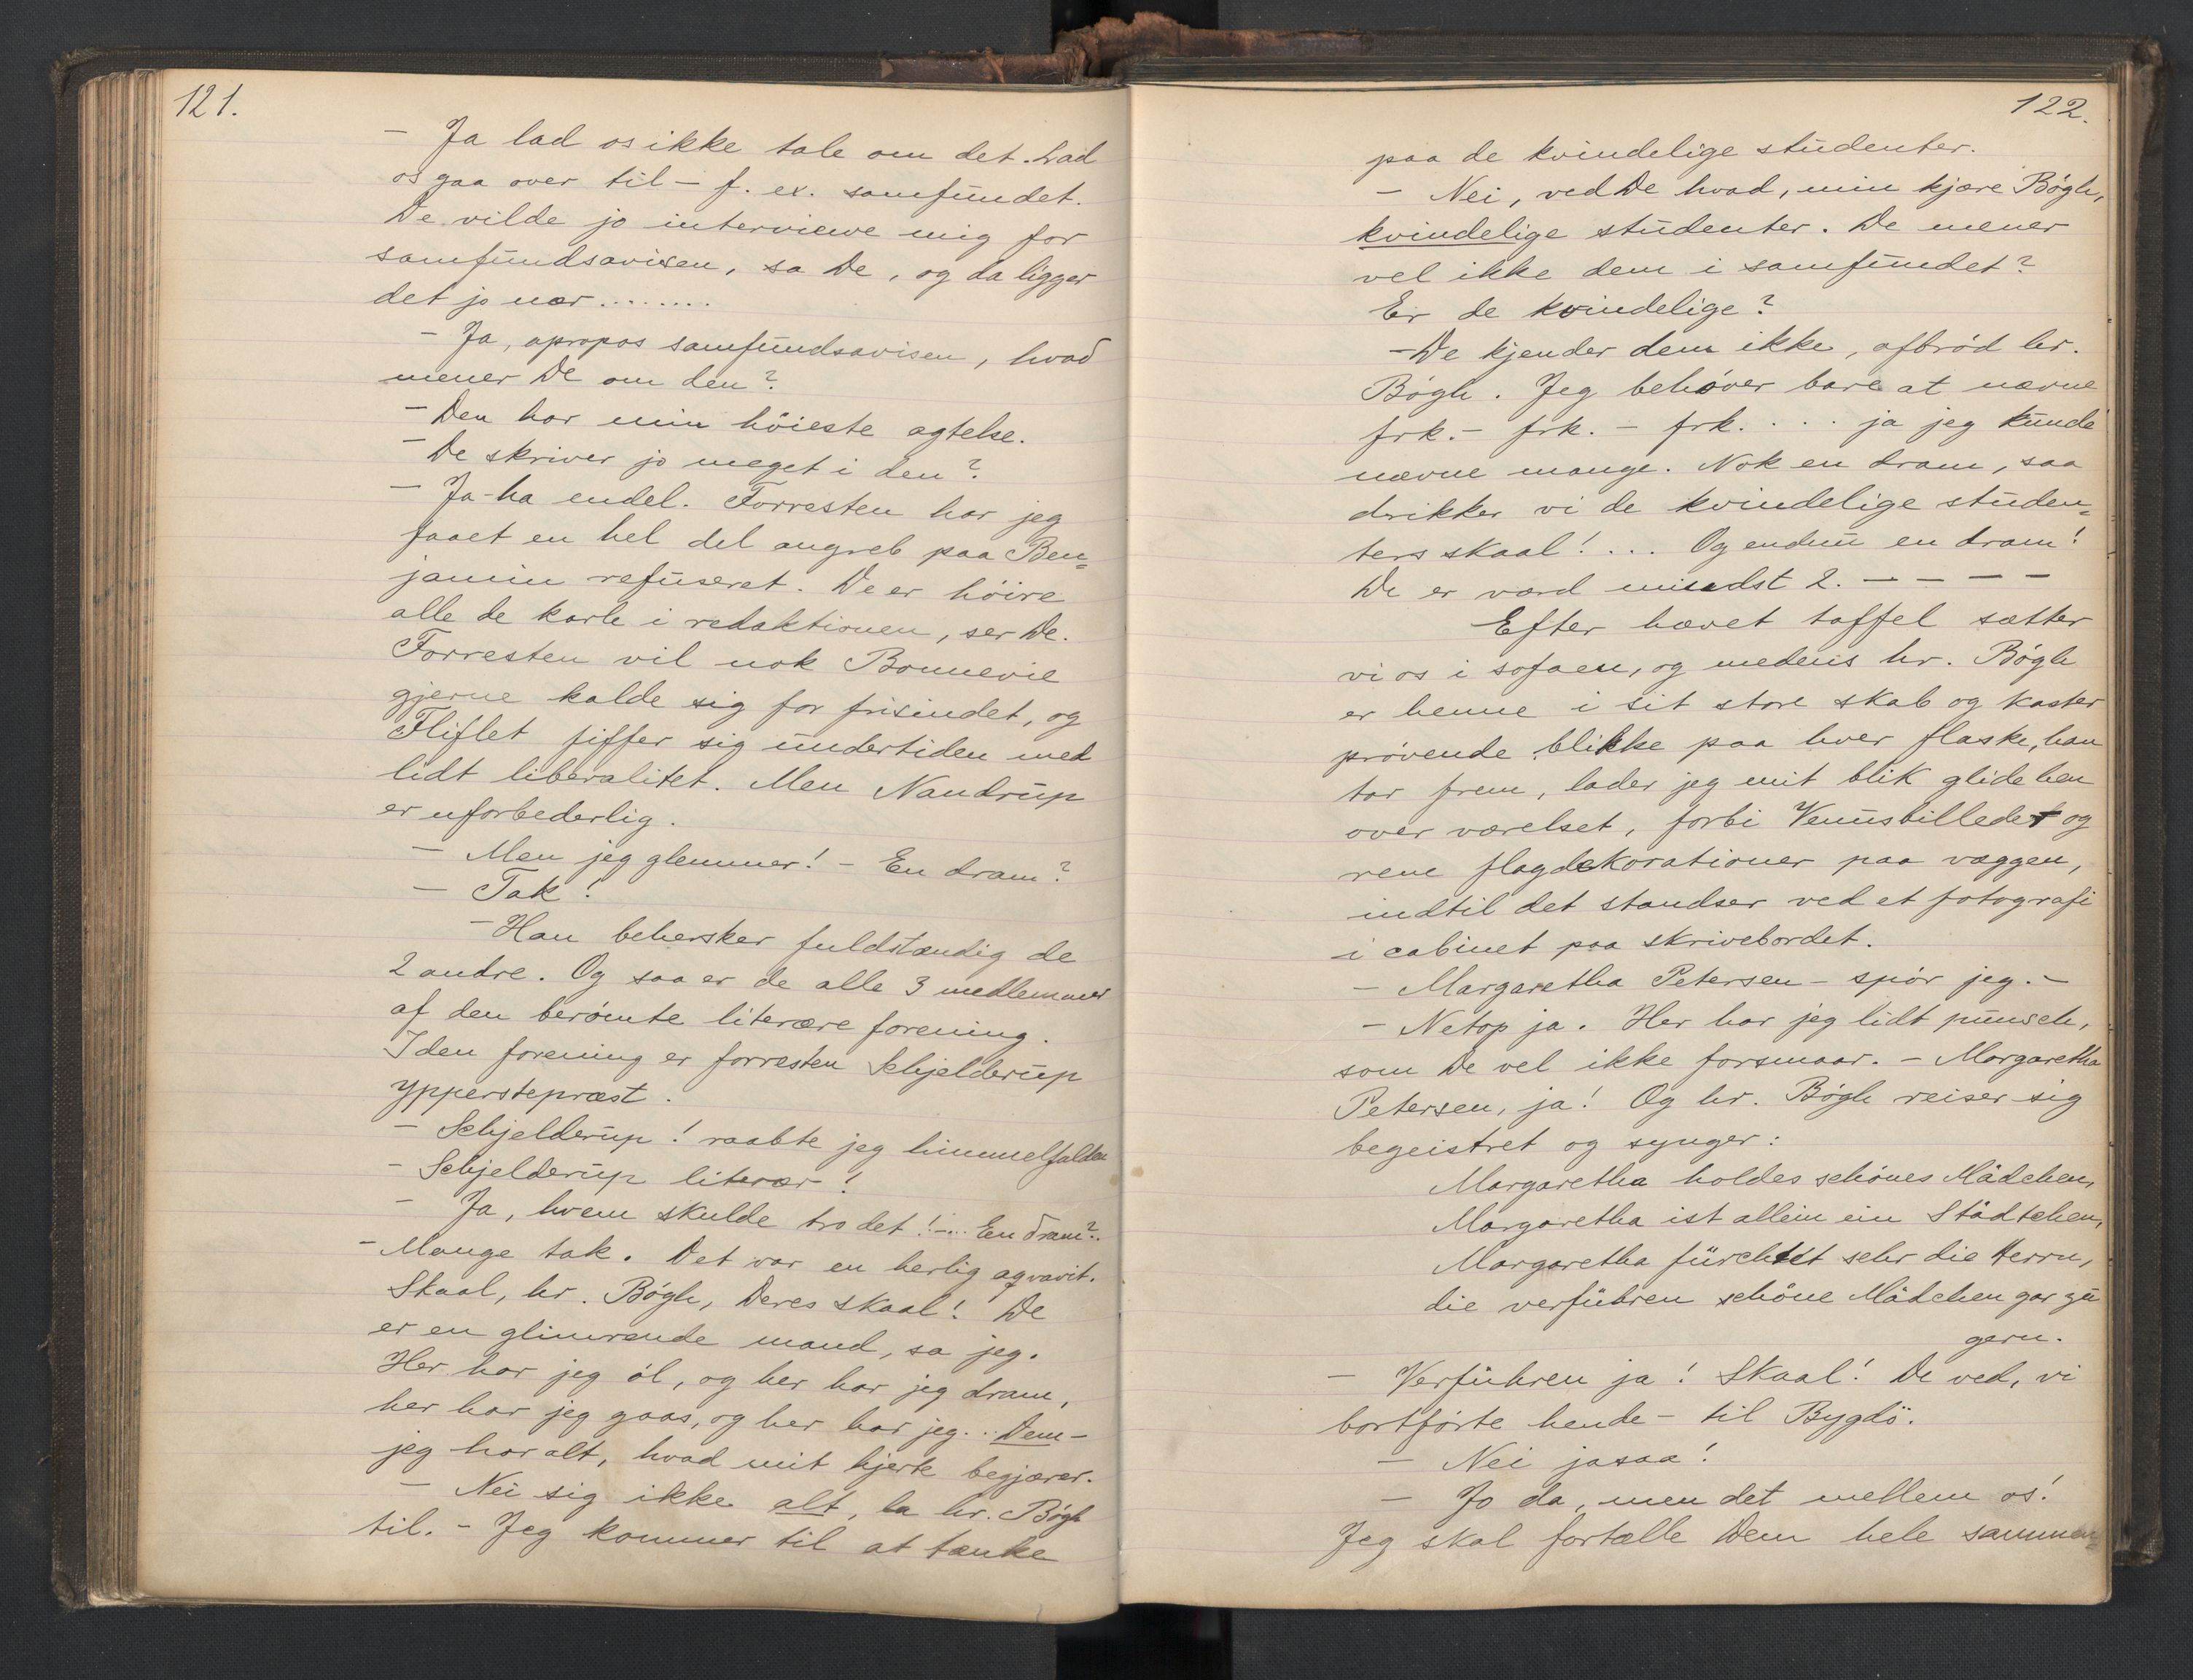 121.
- Ja lad os ikke tale om det. Lad
os gaa over til - f. ex. samfundet.
De vilde jo interviewe mig for
samfundsavisen, sa De, og da ligger
det jo nær........
- Ja, apropos samfundsavisen, hvad
mener De om den?
- Den har min høieste agtelse.
- De skriver jo meget i den?
- Ja-ha endel. Forresten har jeg
faaet en hel del angreb paa Ben=
jamin refuseret. De er høire
alle de karle i redaktionen, ser De.
Forresten vil nok Bonnevie
gjerne kalde sig for frisindet, og
Fliflet fiffer sig undertiden med
lidt liberalitet. Men Nandrup
er uforbederlig.
- Men jeg glemmer! - En dram?
- Tak!
- Han behersker fuldstændig de
2 andre. Og saa er de alle 3 medlemmer
af den berømte literære forening.
I den forening er forresten Schjelderup
ypperstepræst.
- Schjelderup! raabte jeg himmelfalden
- Schjelderup literær!
- Ja, hvem skulde tro det! -... En dram?
- Mange tak. Det var en herlig aqvavit.
Skaal, hr. Bøgh, Deres skaal! De
er en glimrende mand, sa jeg.
Her har jeg øl, og her har jeg dram,
her har jeg gaas, og her har jeg... Dem -
jeg har alt, hvad mit hjerte begjærer.
- Nei sig ikke alt, la hr. Bøgh
til. - Jeg kommer til at tænke
122.
paa de kvindelige studenter.
- Nei, ved De hvad, min kjære Bøgh,
kvindelige studenter. De mener
vel ikke dem i samfundet?
Er de kvindelige?
- De kjender dem ikke, afbrød hr.
Bøgh. Jeg behøver bare at nævne
frk. - frk. - frk. . . . ja jeg kunde
nævne mange. Nok en dram, saa
drikker vi de kvindelige studen=
ters skaal! ... Og endnu en dram!
De er værd mindst 2. - - - -
Efter hævet taffel sætter
vi os i sofaen, og medens hr. Bøgh
er henne i sit store skab og kaster
prøvende blikke paa hver flaske, han
tar frem, lader jeg mit blik glide hen
over værelset, forbi Venusbilledet og
rene flagdekorationer paa væggen,
indtil det standser ved et fotografi
i cabinet paa skrivebordet.
- Margaretha Petersen - spør jeg. -
- Netop ja. Her har jeg lidt punsch,
som De vel ikke forsmaar. - Margaretha
Petersen, ja! Og hr. Bøgh reiser sig
begeistret og synger:
Margaretha holdes schönes Mädchen,
Margaretha ist allein ein Städtchen,
Margaretha fürchtet sehr die Herrn,
die verführen schöne Mädchen gar zu
gern.
- Verführen ja! Skaal! De ved, vi
bortførte hende - til Bygdö.
- Nei jasaa!
- Jo da, men det mellem os!
Jeg skal fortælle Dem hele sammen=